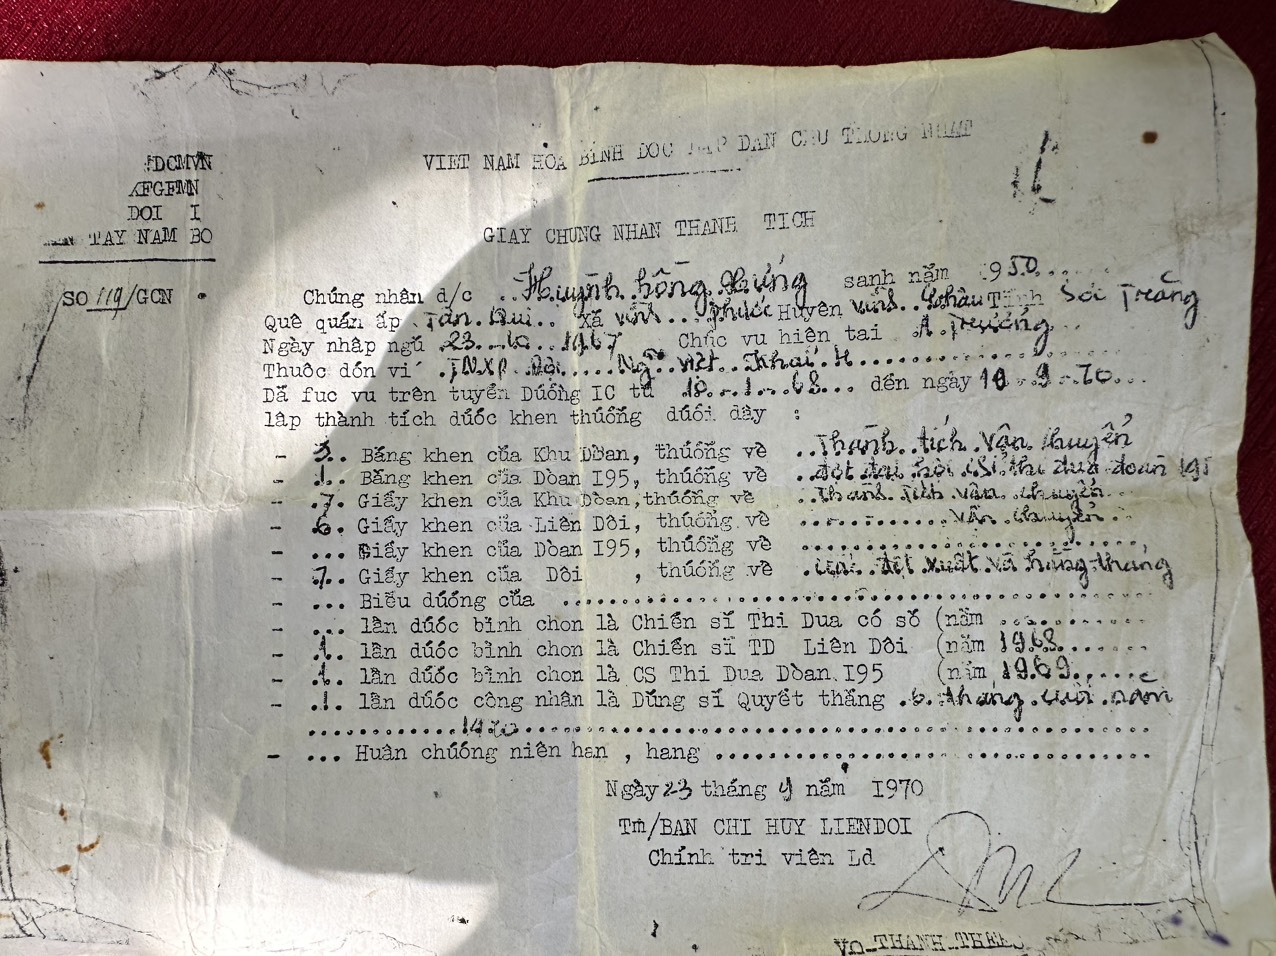 DCMVN
VIET NAM HOA BINH DOC LAP DAN CHU THONG NHAT
FGFMN
DOI I
TAY NAM BO
GIAY CHUNG NHAN THANH TICH
SO 119/GCN
Chúng nhân d/c ..Huỳnh.hồng. sanh năm 1950......
Quê quán ấp .Tân. ... Xã vĩnh...phước Huyện vĩnh..Châu Tỉnh Sóc Trăng
Ngày nhâp ngũ 23...10...1967 Chúc vu hiên tai .A.Trưởng...
Thuôc dón vi .TNXP.Đội....Ng̃.Việt.Khái.H...............
Dã fuc vu trên tuyến Dúòng IC tú .18.-1.-.68... dến ngày 10.-.9.-.70...
lâp thành tích dúóc khen thúóng dúói dây :
- .3.. Bằng khen của Khu Dòan, thúóng về ..Thành.tích.Vận.chuyển
- .1.. Bằng khen của Dòan I95, thúóng về .đợt.đại.hội.CSĩ.thi đua.đoàn 195
- .7. Giấy khen của Khu Dòan,thúóng về ..Thành.tích.vận.chuyển..
- .6.. Giấy khen của Liên Dôi, thúóng về ............vận.chuyển..
- ... Giấy khen của Dòan I95, thúóng về ........................
- .7.. Giấy khen của Dôi , thúóng về ....đột.xuất.và hằng.tháng
- ... Biểu dúóng của ........................................
- ... lần dúóc bình chon là Chiến sí Thi Dua có số (năm ............
- .1.. lần dúóc bình chon là Chiến sí TD Liên Dôi (năm 1968........
- .1.. lần dúóc bình chon là CS Thi Dua Dòan I95 (năm 1969........
- .1.. lần dúóc công nhân là Dúng sí Quyết thắng .6.tháng.cuối.năm
............1970............................................
- ... Huân chúóng niên han , hang ..............................
Ngày 23 tháng 9 năm I970
Tm/BAN CHI HUY LIENDOI
Chính tri viên Ld
VO THANH